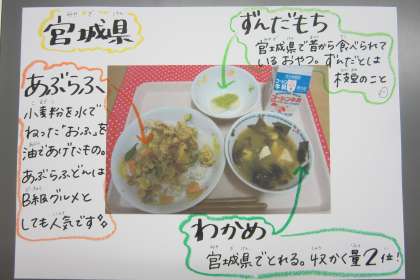 宮城県
ずんだもち
宮城県で昔から食べられて
いるおやつ。ずんだとは
枝豆のこと
あぶらふ
小麦粉を水で
ねった"おふ"を
油であげたもの。
あぶらふどんは
B級グルメと
しても人気です。
わかめ
宮城県でとれる。収かく量2位!